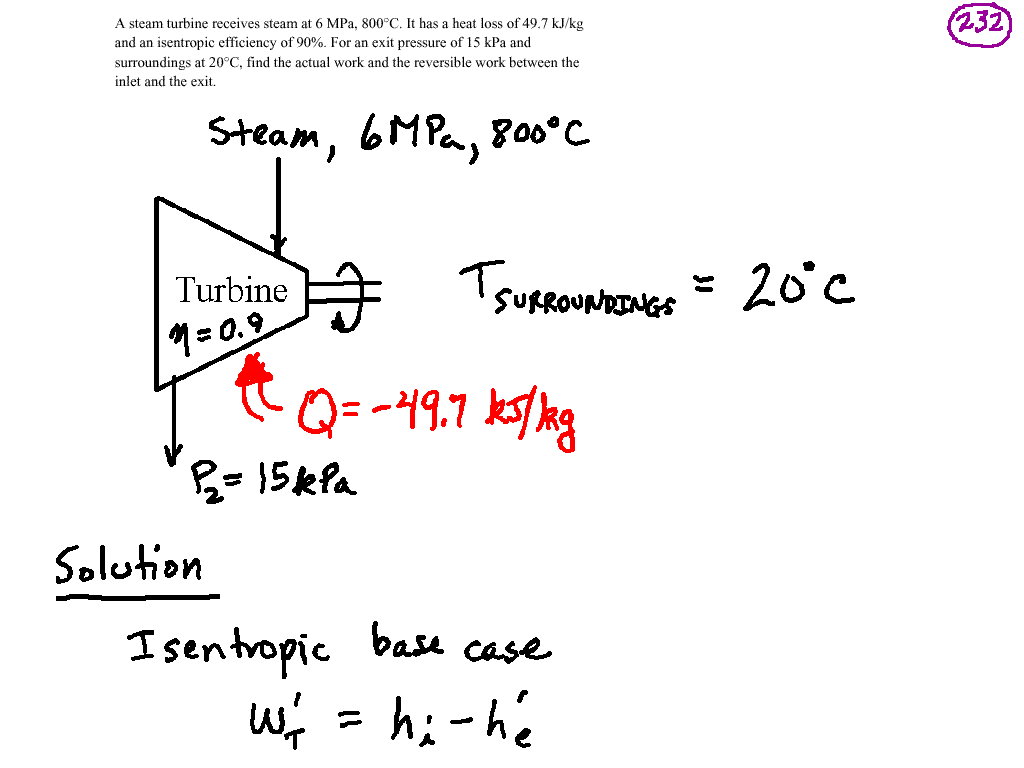 A steam turbine receives steam at 6 MPa, 800°C. It has a heat loss of 49.7 kJ/kg
and an isentropic efficiency of 90%. For an exit pressure of 15 kPa and
surroundings at 20°C, find the actual work and the reversible work between the
inlet and the exit.
232
Steam, 6 MPa, 800°C
Turbine
η = 0.9
T_SURROUNDINGS = 20°C
Q = -49.7 kJ/kg
P₂ = 15 kPa
Solution
Isentropic base case
w'_T = h_i - h'_e